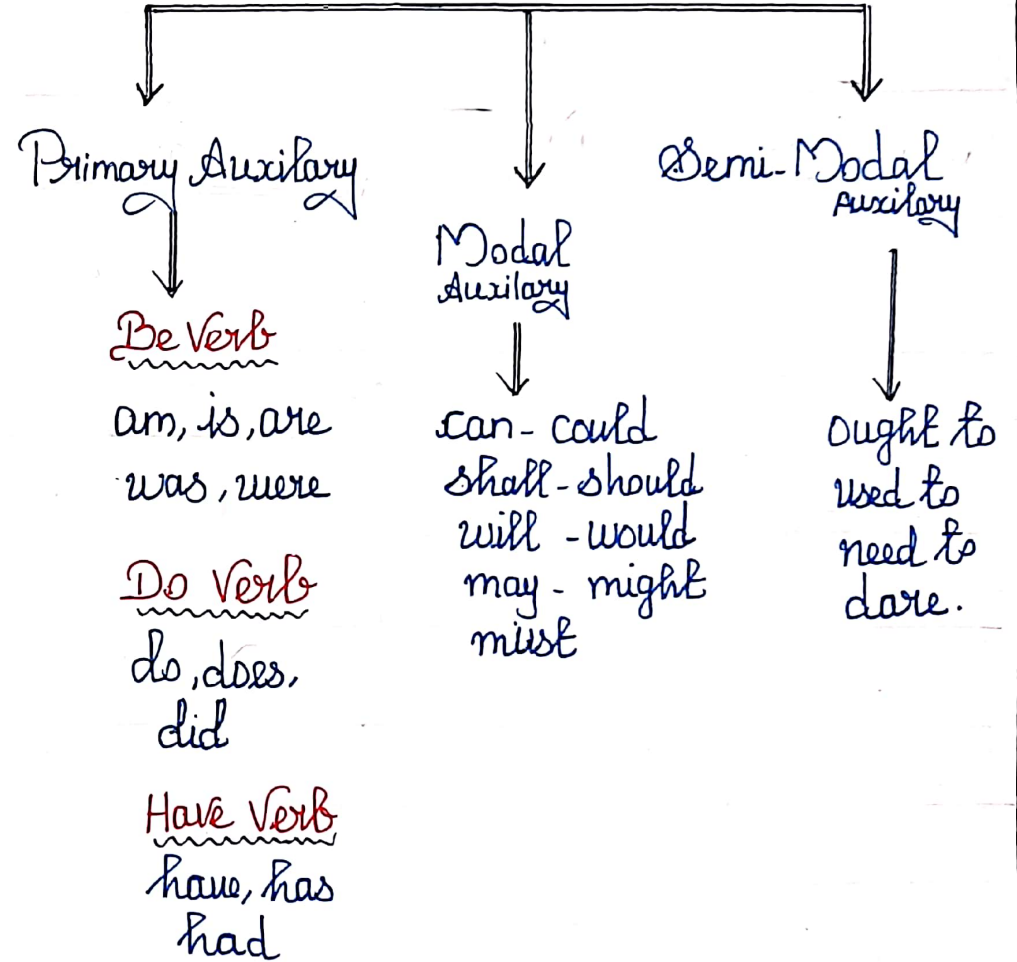 Primary Auxilary
Be Verb
am, is, are
was, were
Do Verb
do, does,
did
Have Verb
have, has
had
Modal
Auxilary
can - could
shall - should
will - would
may - might
must
Semi-Modal
Auxilary
ought to
used to
need to
dare.